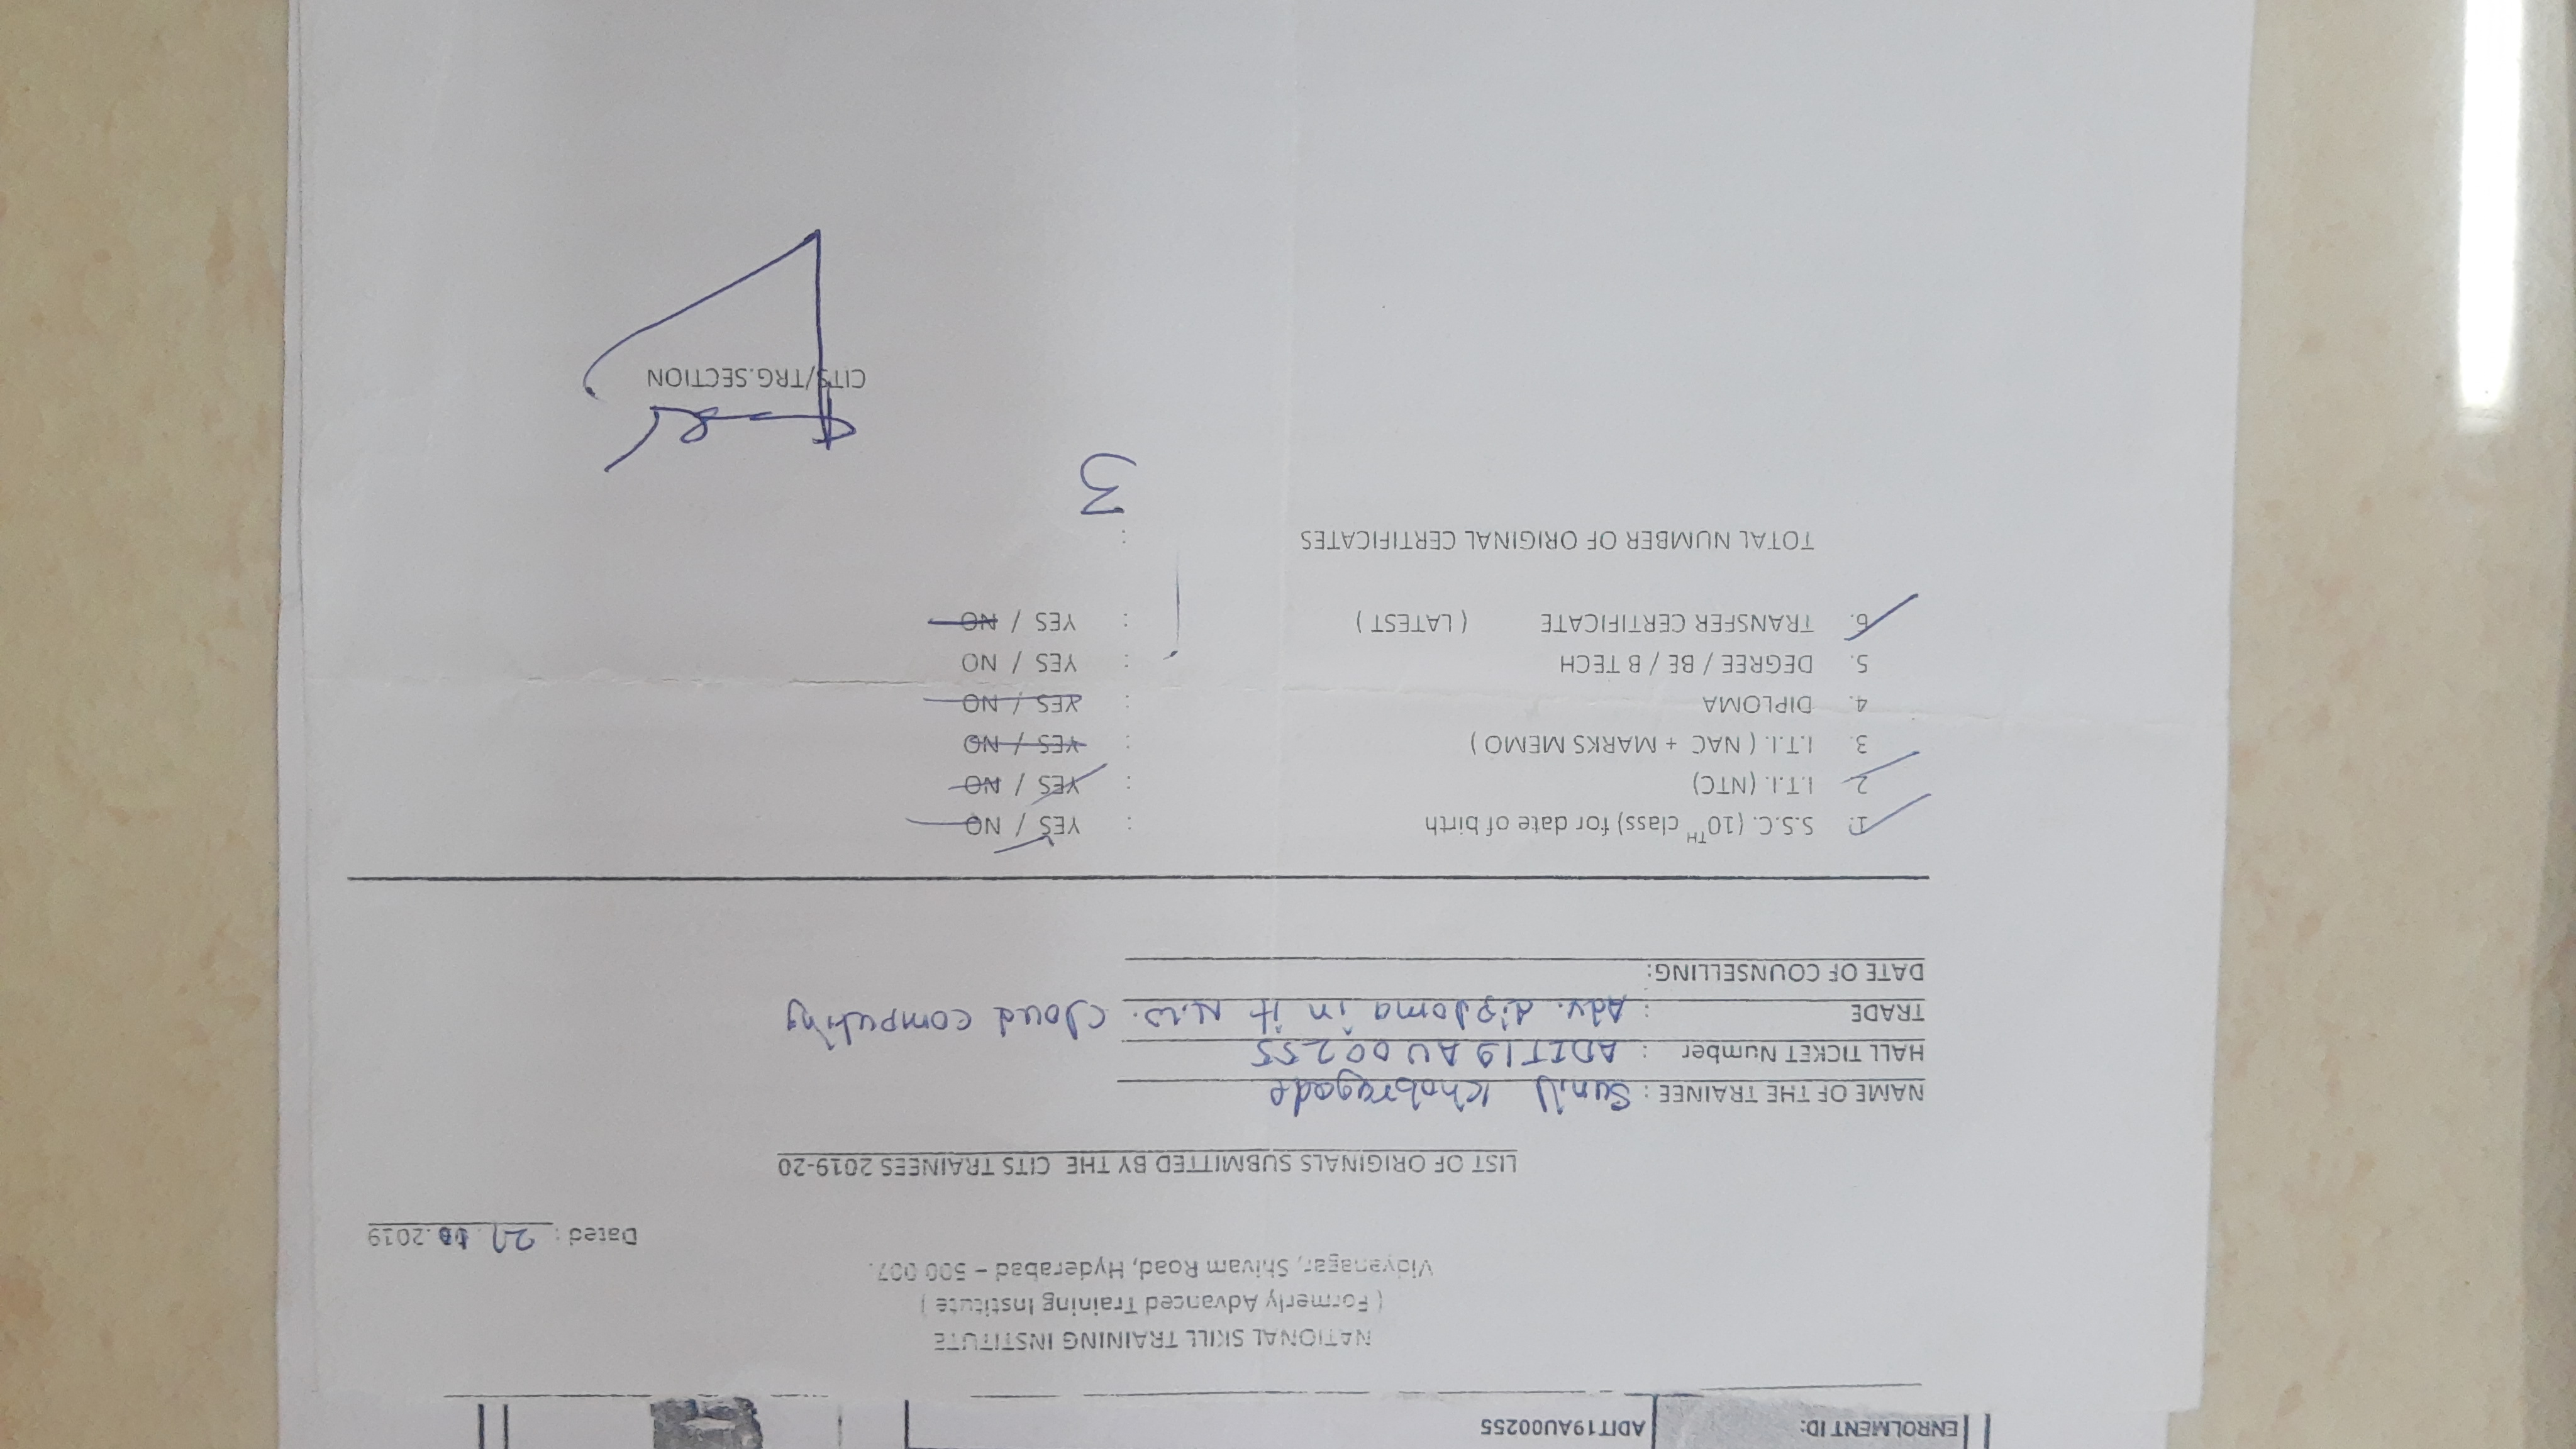 ENROLMENT ID: ADIT19AU00255
NATIONAL SKILL TRAINING INSTITUTE
( Formerly Advanced Training Institute )
Vidyanagar, Shivam Road, Hyderabad – 500 007.
Dated : .2019
LIST OF ORIGINALS SUBMITTED BY THE CITS TRAINEES 2019-20
NAME OF THE TRAINEE : Sunil Khobragade
HALL TICKET Number : ADIT19AU00255
TRADE : Adv. diploma in it N.W. Cloud computing
DATE OF COUNSELLING:
1. S.S.C. (10TH class) for date of birth : YES / NO
2. I.T.I. (NTC) : YES / NO
3. I.T.I. ( NAC + MARKS MEMO ) : YES / NO
4. DIPLOMA : YES / NO
5. DEGREE / BE / B TECH : YES / NO
6. TRANSFER CERTIFICATE ( LATEST ) : YES / NO
TOTAL NUMBER OF ORIGINAL CERTIFICATES : 3
CITS/TRG.SECTION